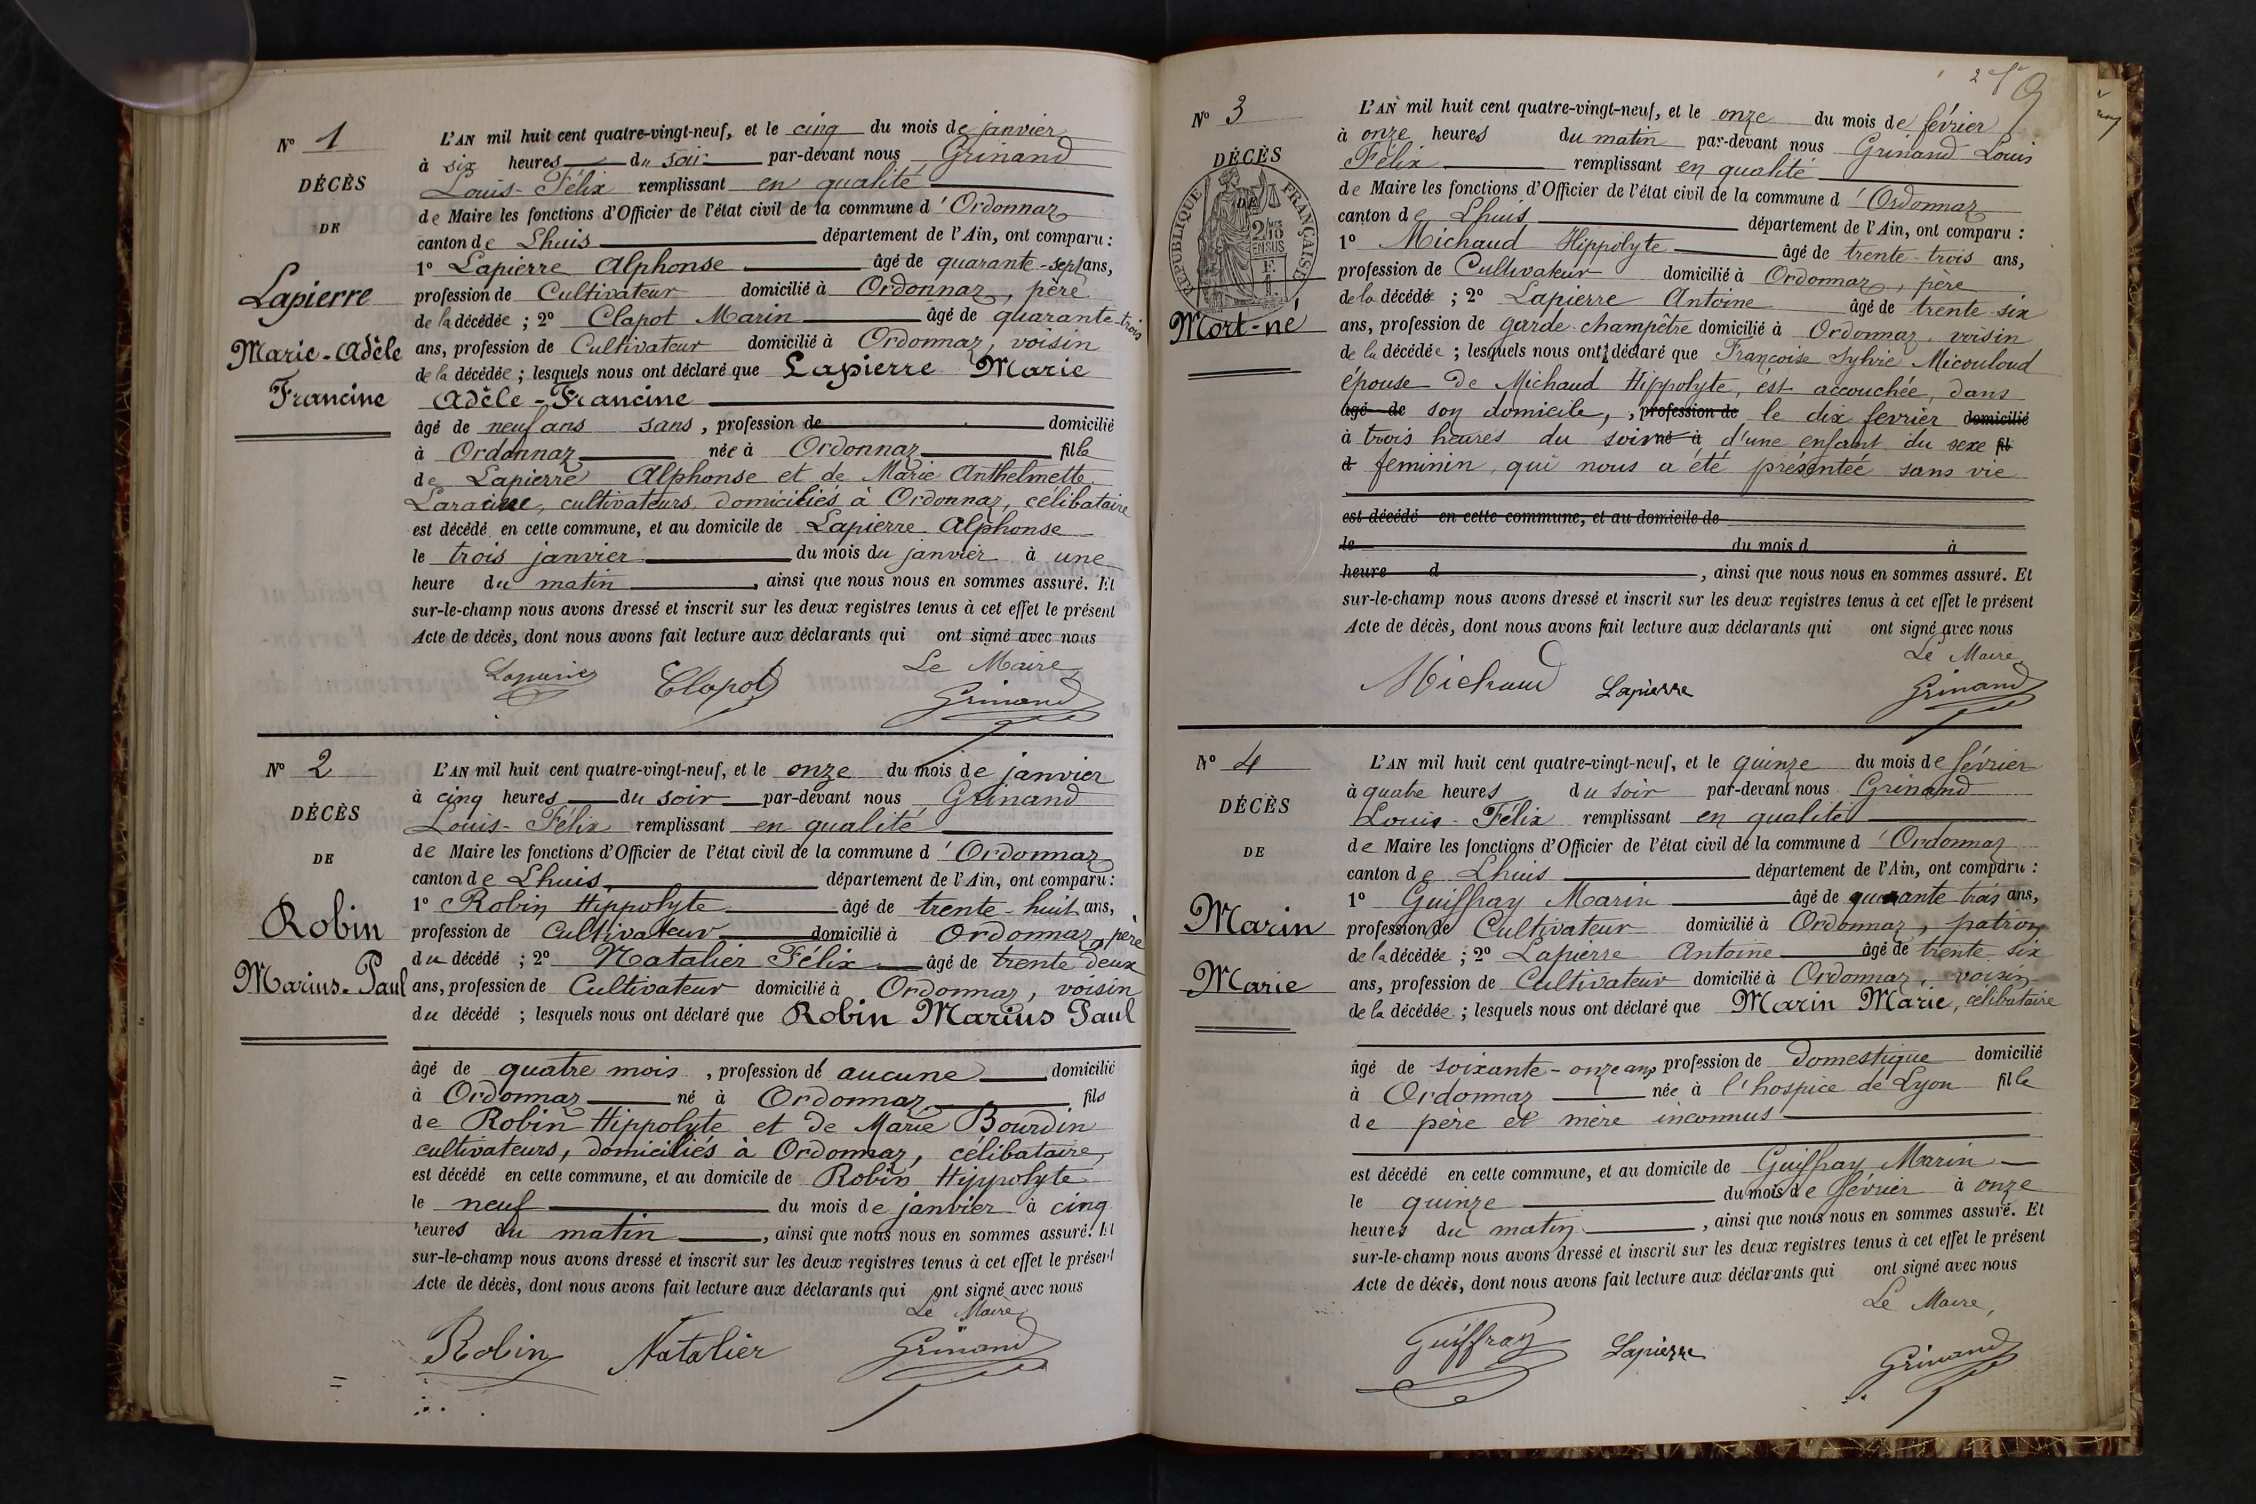 N° 1
DÉCÈS
DE
Lapierre
Marie-Adèle
Francine
L'AN mil huit cent quatre-vingt-neuf, et le cinq du mois de janvier
à six heures du soir par-devant nous Grinand
Louis-Félix remplissant en qualité
de Maire les fonctions d'Officier de l'état civil de la commune d'Ordonnaz
canton de Lhuis département de l'Ain, ont comparu :
1° Lapierre Alphonse âgé de quarante-sept ans,
profession de Cultivateur domicilié à Ordonnaz, père
de la décédée ; 2° Clapot Marin âgé de quarante-trois
ans, profession de Cultivateur domicilié à Ordonnaz, voisin
de la décédée ; lesquels nous ont déclaré que Lapierre Marie
Adèle-Francine
âgé de neuf ans sans, profession de domicilié
à Ordonnaz née à Ordonnaz fille
de Lapierre Alphonse et de Marie Anthelmette
Laracine, cultivateurs, domiciliés à Ordonnaz, célibataire
est décédé en cette commune, et au domicile de Lapierre Alphonse
le trois janvier du mois du janvier à une
heure du matin, ainsi que nous nous en sommes assuré. Et
sur-le-champ nous avons dressé et inscrit sur les deux registres tenus à cet effet le présent
Acte de décès, dont nous avons fait lecture aux déclarants qui ont signé avec nous
Le Maire
Lapierre Clapot Grinand
N° 2
DÉCÈS
DE
Robin
Marius-Paul
L'AN mil huit cent quatre-vingt-neuf, et le onze du mois de janvier
à cinq heures du soir par-devant nous Grinand
Louis-Félix remplissant en qualité
de Maire les fonctions d'Officier de l'état civil de la commune d'Ordonnaz
canton de Lhuis département de l'Ain, ont comparu :
1° Robin Hippolyte âgé de trente-huit ans,
profession de Cultivateur domicilié à Ordonnaz, père
du décédé ; 2° Natalier Félix âgé de trente deux
ans, profession de Cultivateur domicilié à Ordonnaz, voisin
du décédé ; lesquels nous ont déclaré que Robin Marius Paul
âgé de quatre mois, profession de aucune domicilié
à Ordonnaz né à Ordonnaz fils
de Robin Hippolyte et de Marie Bourdin
cultivateurs, domiciliés à Ordonnaz, célibataire,
est décédé en cette commune, et au domicile de Robin Hippolyte
le neuf du mois de janvier à cinq
heures du matin, ainsi que nous nous en sommes assuré. Et
sur-le-champ nous avons dressé et inscrit sur les deux registres tenus à cet effet le présent
Acte de décès, dont nous avons fait lecture aux déclarants qui ont signé avec nous
Le Maire,
Robin Natalier Grinand
N° 3
DÉCÈS
DE
RÉPUBLIQUE FRANÇAISE
Mort-né
L'AN mil huit cent quatre-vingt-neuf, et le onze du mois de février
à onze heures du matin par-devant nous Grinand Louis
Félix remplissant en qualité
de Maire les fonctions d'Officier de l'état civil de la commune d'Ordonnaz
canton de Lhuis département de l'Ain, ont comparu :
1° Michaud Hippolyte âgé de trente-trois ans,
profession de Cultivateur domicilié à Ordonnaz, père
de la décédé ; 2° Lapierre Antoine âgé de trente-six
ans, profession de garde-champêtre domicilié à Ordonnaz, voisin
de la décédée ; lesquels nous ont déclaré que Françoise Sylvie Micouloud
épouse de Michaud Hippolyte, est accouchée, dans
âgé de son domicile, , profession de le dix fevrier domicilié
à trois heures du soir né à d'une enfant du sexe fil
d feminin, qui nous a été présentée sans vie
est décédé en cette commune, et au domicile de
le du mois d à
heure d , ainsi que nous nous en sommes assuré. Et
sur-le-champ nous avons dressé et inscrit sur les deux registres tenus à cet effet le présent
Acte de décès, dont nous avons fait lecture aux déclarants qui ont signé avec nous
Le Maire,
Michaud Lapierre Grinand
N° 4
DÉCÈS
DE
Marin
Marie
L'AN mil huit cent quatre-vingt-neuf, et le quinze du mois de février
à quatre heures du soir par-devant nous Grinand
Louis-Félix remplissant en qualité
de Maire les fonctions d'Officier de l'état civil de la commune d'Ordonnaz
canton de Lhuis département de l'Ain, ont comparu :
1° Guiffray Marin âgé de quarante-trois ans,
profession de Cultivateur domicilié à Ordonnaz, patron
de la décédée ; 2° Lapierre Antoine âgé de trente-six
ans, profession de Cultivateur domicilié à Ordonnaz, voisin
de la décédée ; lesquels nous ont déclaré que Marin Marie, célibataire
âgé de soixante-onze ans profession de Domestique domicilié
à Ordonnaz née à l'hospice de Lyon fille
de père et mère inconnus
est décédé en cette commune, et au domicile de Guiffray Marin
le quinze du mois de février à onze
heures du matin, ainsi que nous nous en sommes assuré. Et
sur-le-champ nous avons dressé et inscrit sur les deux registres tenus à cet effet le présent
Acte de décès, dont nous avons fait lecture aux déclarants qui ont signé avec nous
Le Maire,
Guiffray Lapierre Grinand